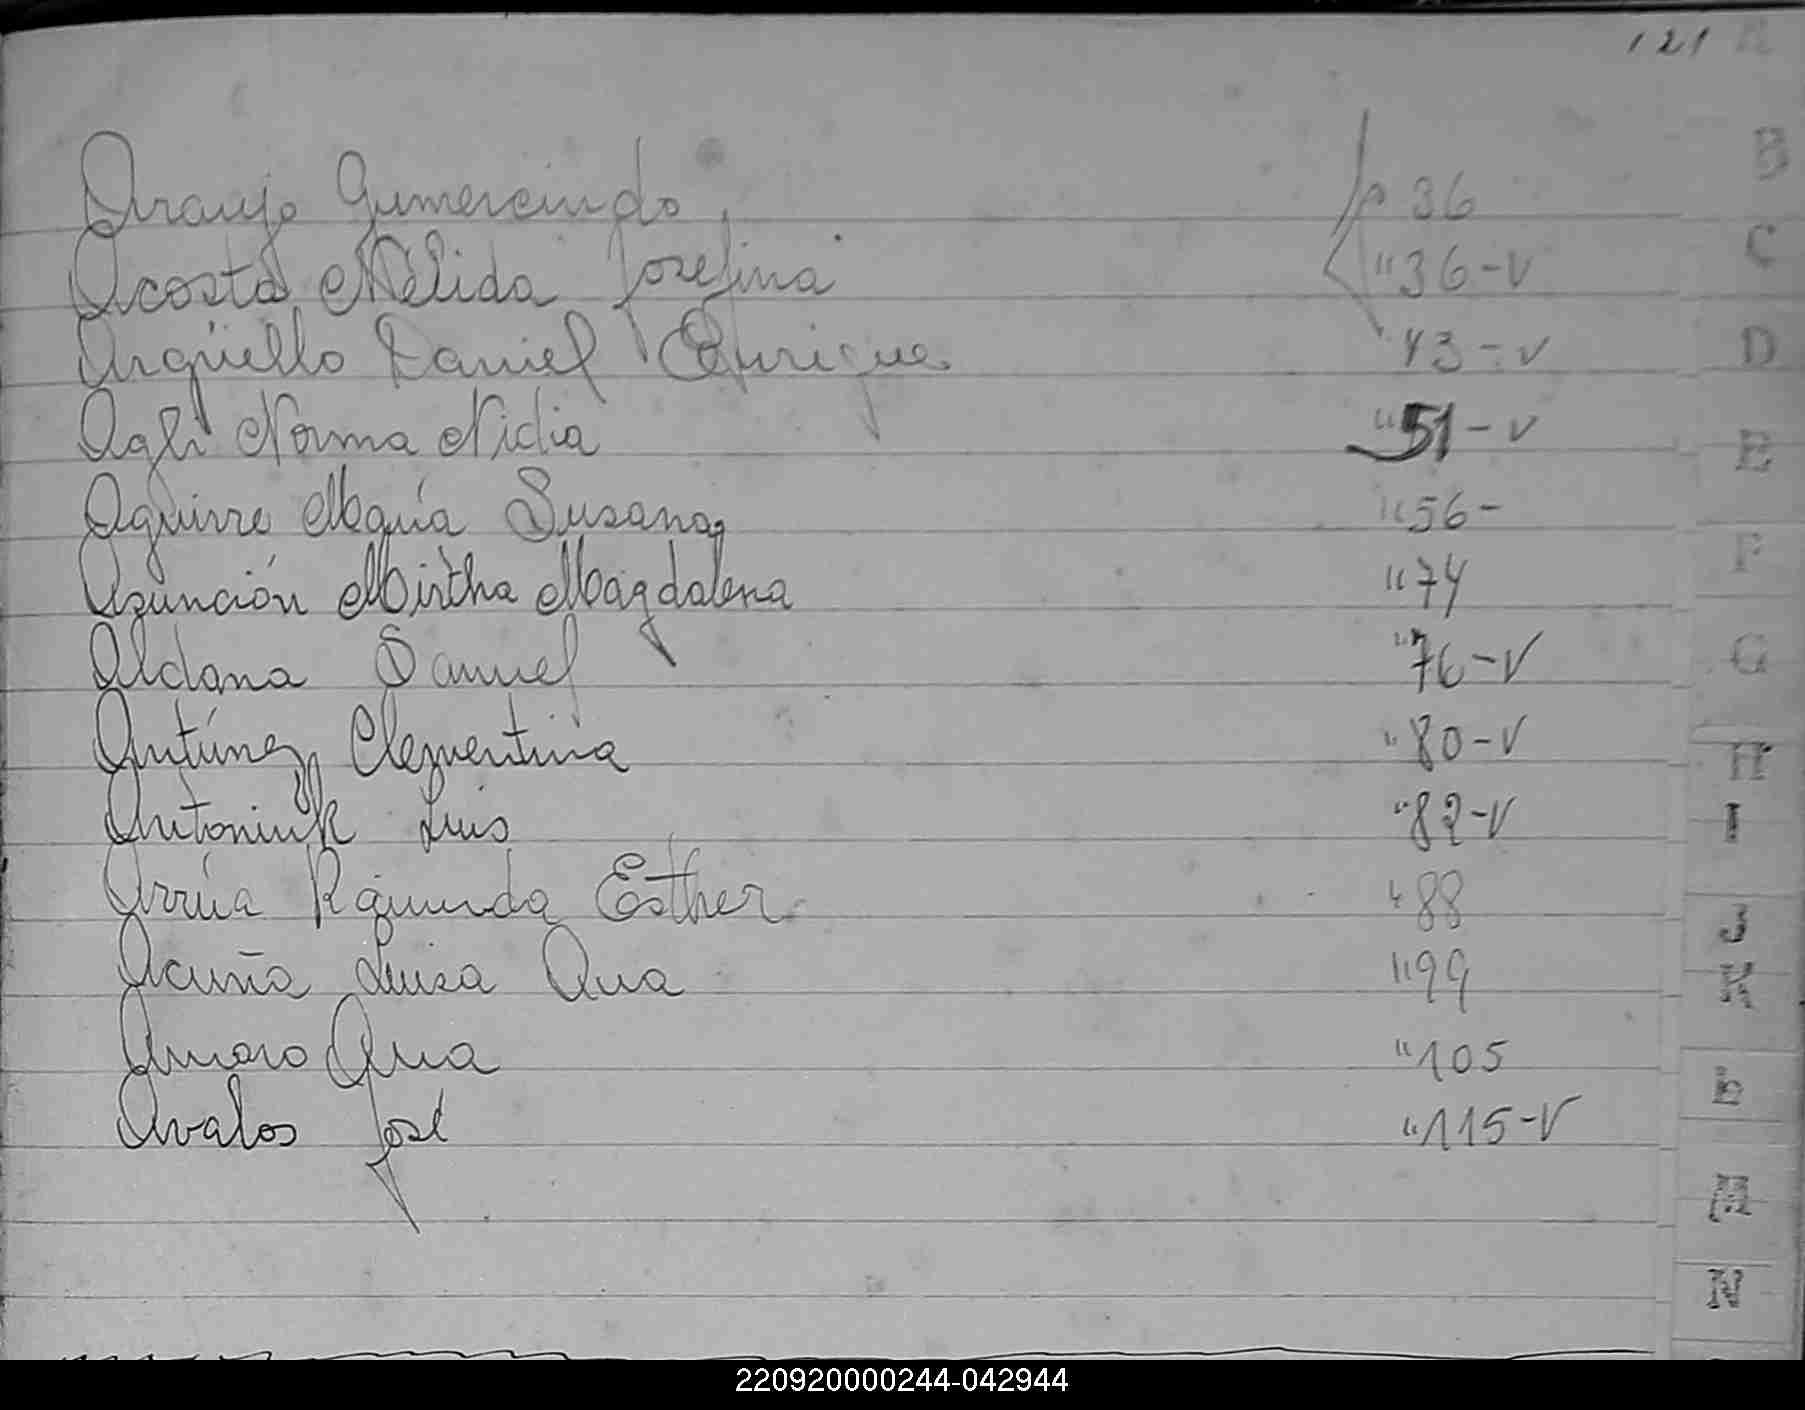 121 A
Araujo Gumercindo, p 36
Acosta Nélida Josefina "36-V
Argüello Daniel Enrique "43-V
Agli Norma Nidia "51-V
Aguirre María Susana "56-
Asunción Mirtha Magdalena "74
Aldana Samuel "76-V
Antúnez Clementina "80-V
Antoniuk Luis "82-V
Arrúa Raimunda Esther "88
Acuña Luisa Ana "99
Amaro Ana "105
Avalos José "115-V
B
C
D
E
F
G
H
I
J
K
M
N
220920000244-042944